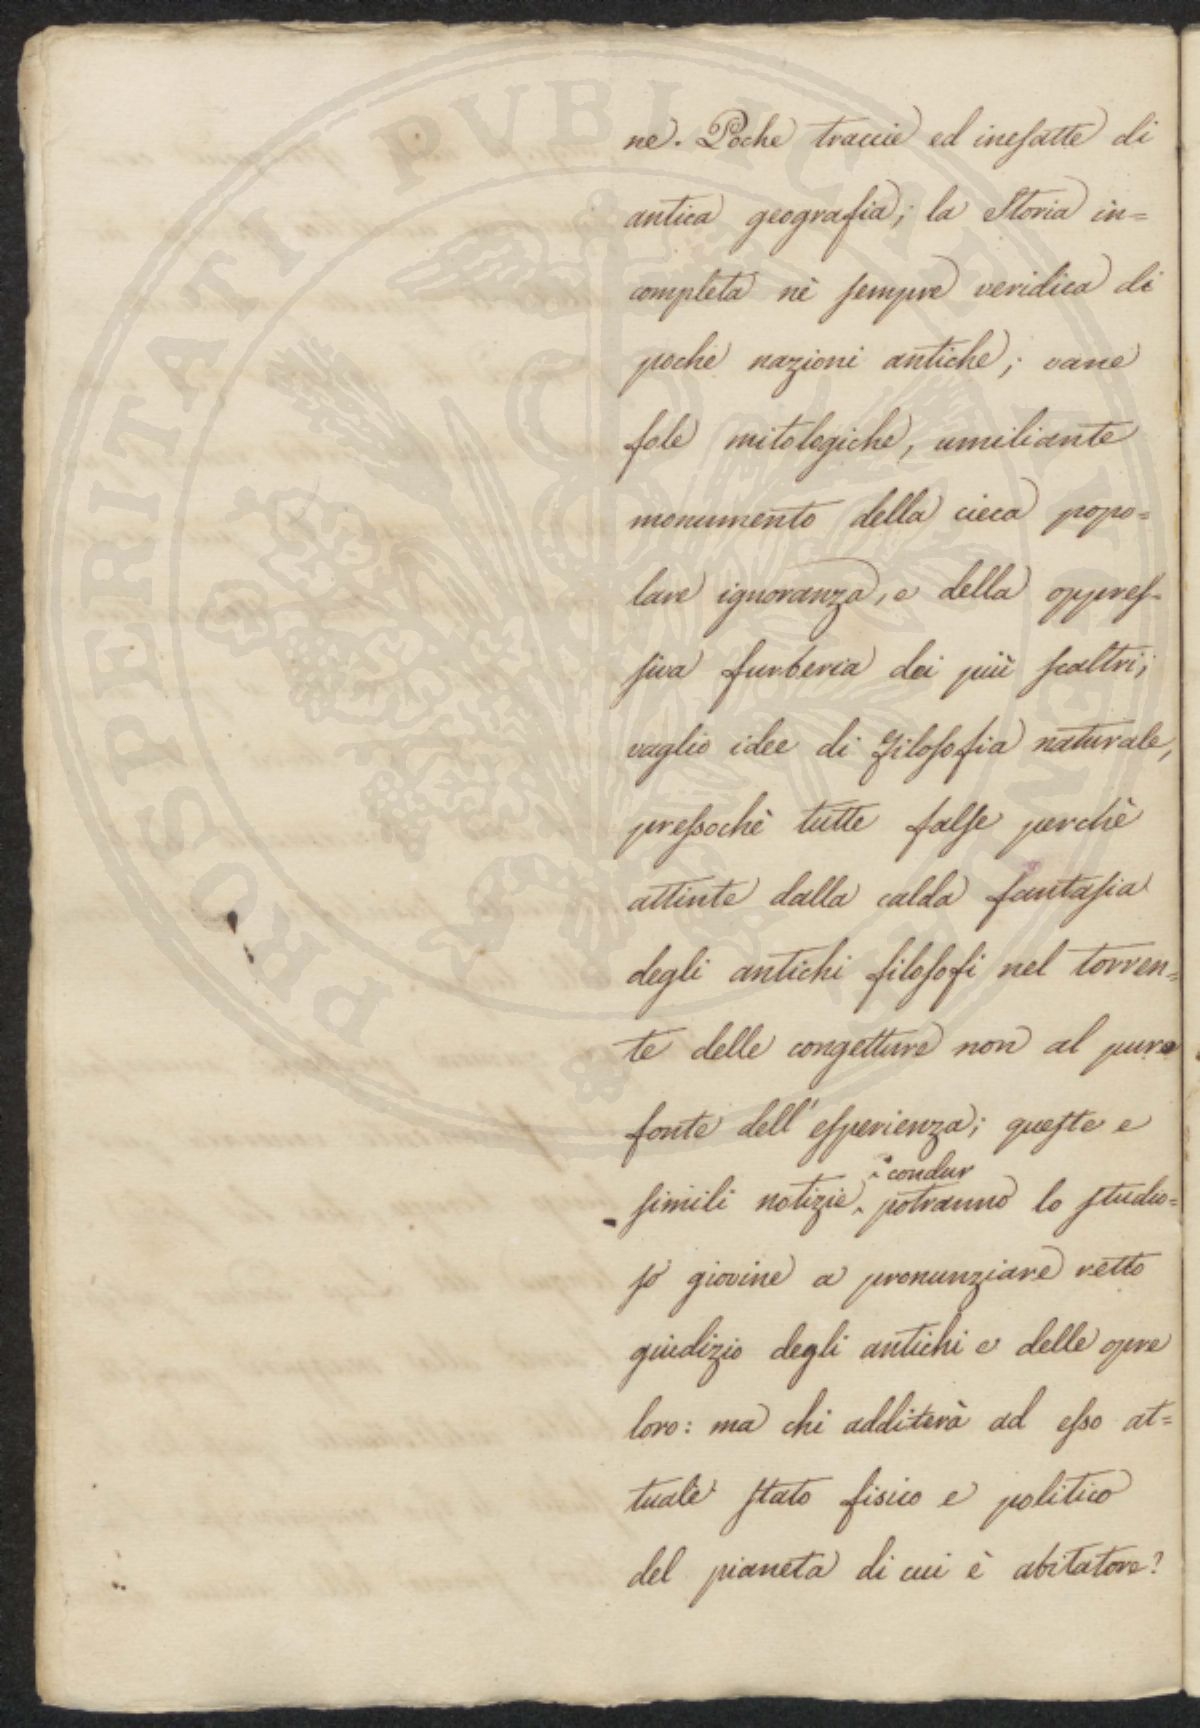 ne. Poche traccie ed inesatte di
antica geografia; la Storia in=
completa nè sempre veridica di
poche nazioni antiche; vane
fole mitologiche, umiliante
monumento della cieca popo=
lare ignoranza, e della oppres-
siva furberia dei più scaltri;
vaghe idee di filosofia naturale,
pressochè tutte false perchè
attinte dalla calda fantasia
degli antichi filosofi nel torren=
te delle congetture non al puro
fonte dell'esperienza; queste e
condur
simili notizie potranno lo studio=
so giovine a pronunziare retto
giudizio degli antichi e delle opre
loro: ma chi additerà ad esso at=
tuale stato fisico e politico
del pianeta di cui è abitatore?
PROSPERITATI PVBLICAE